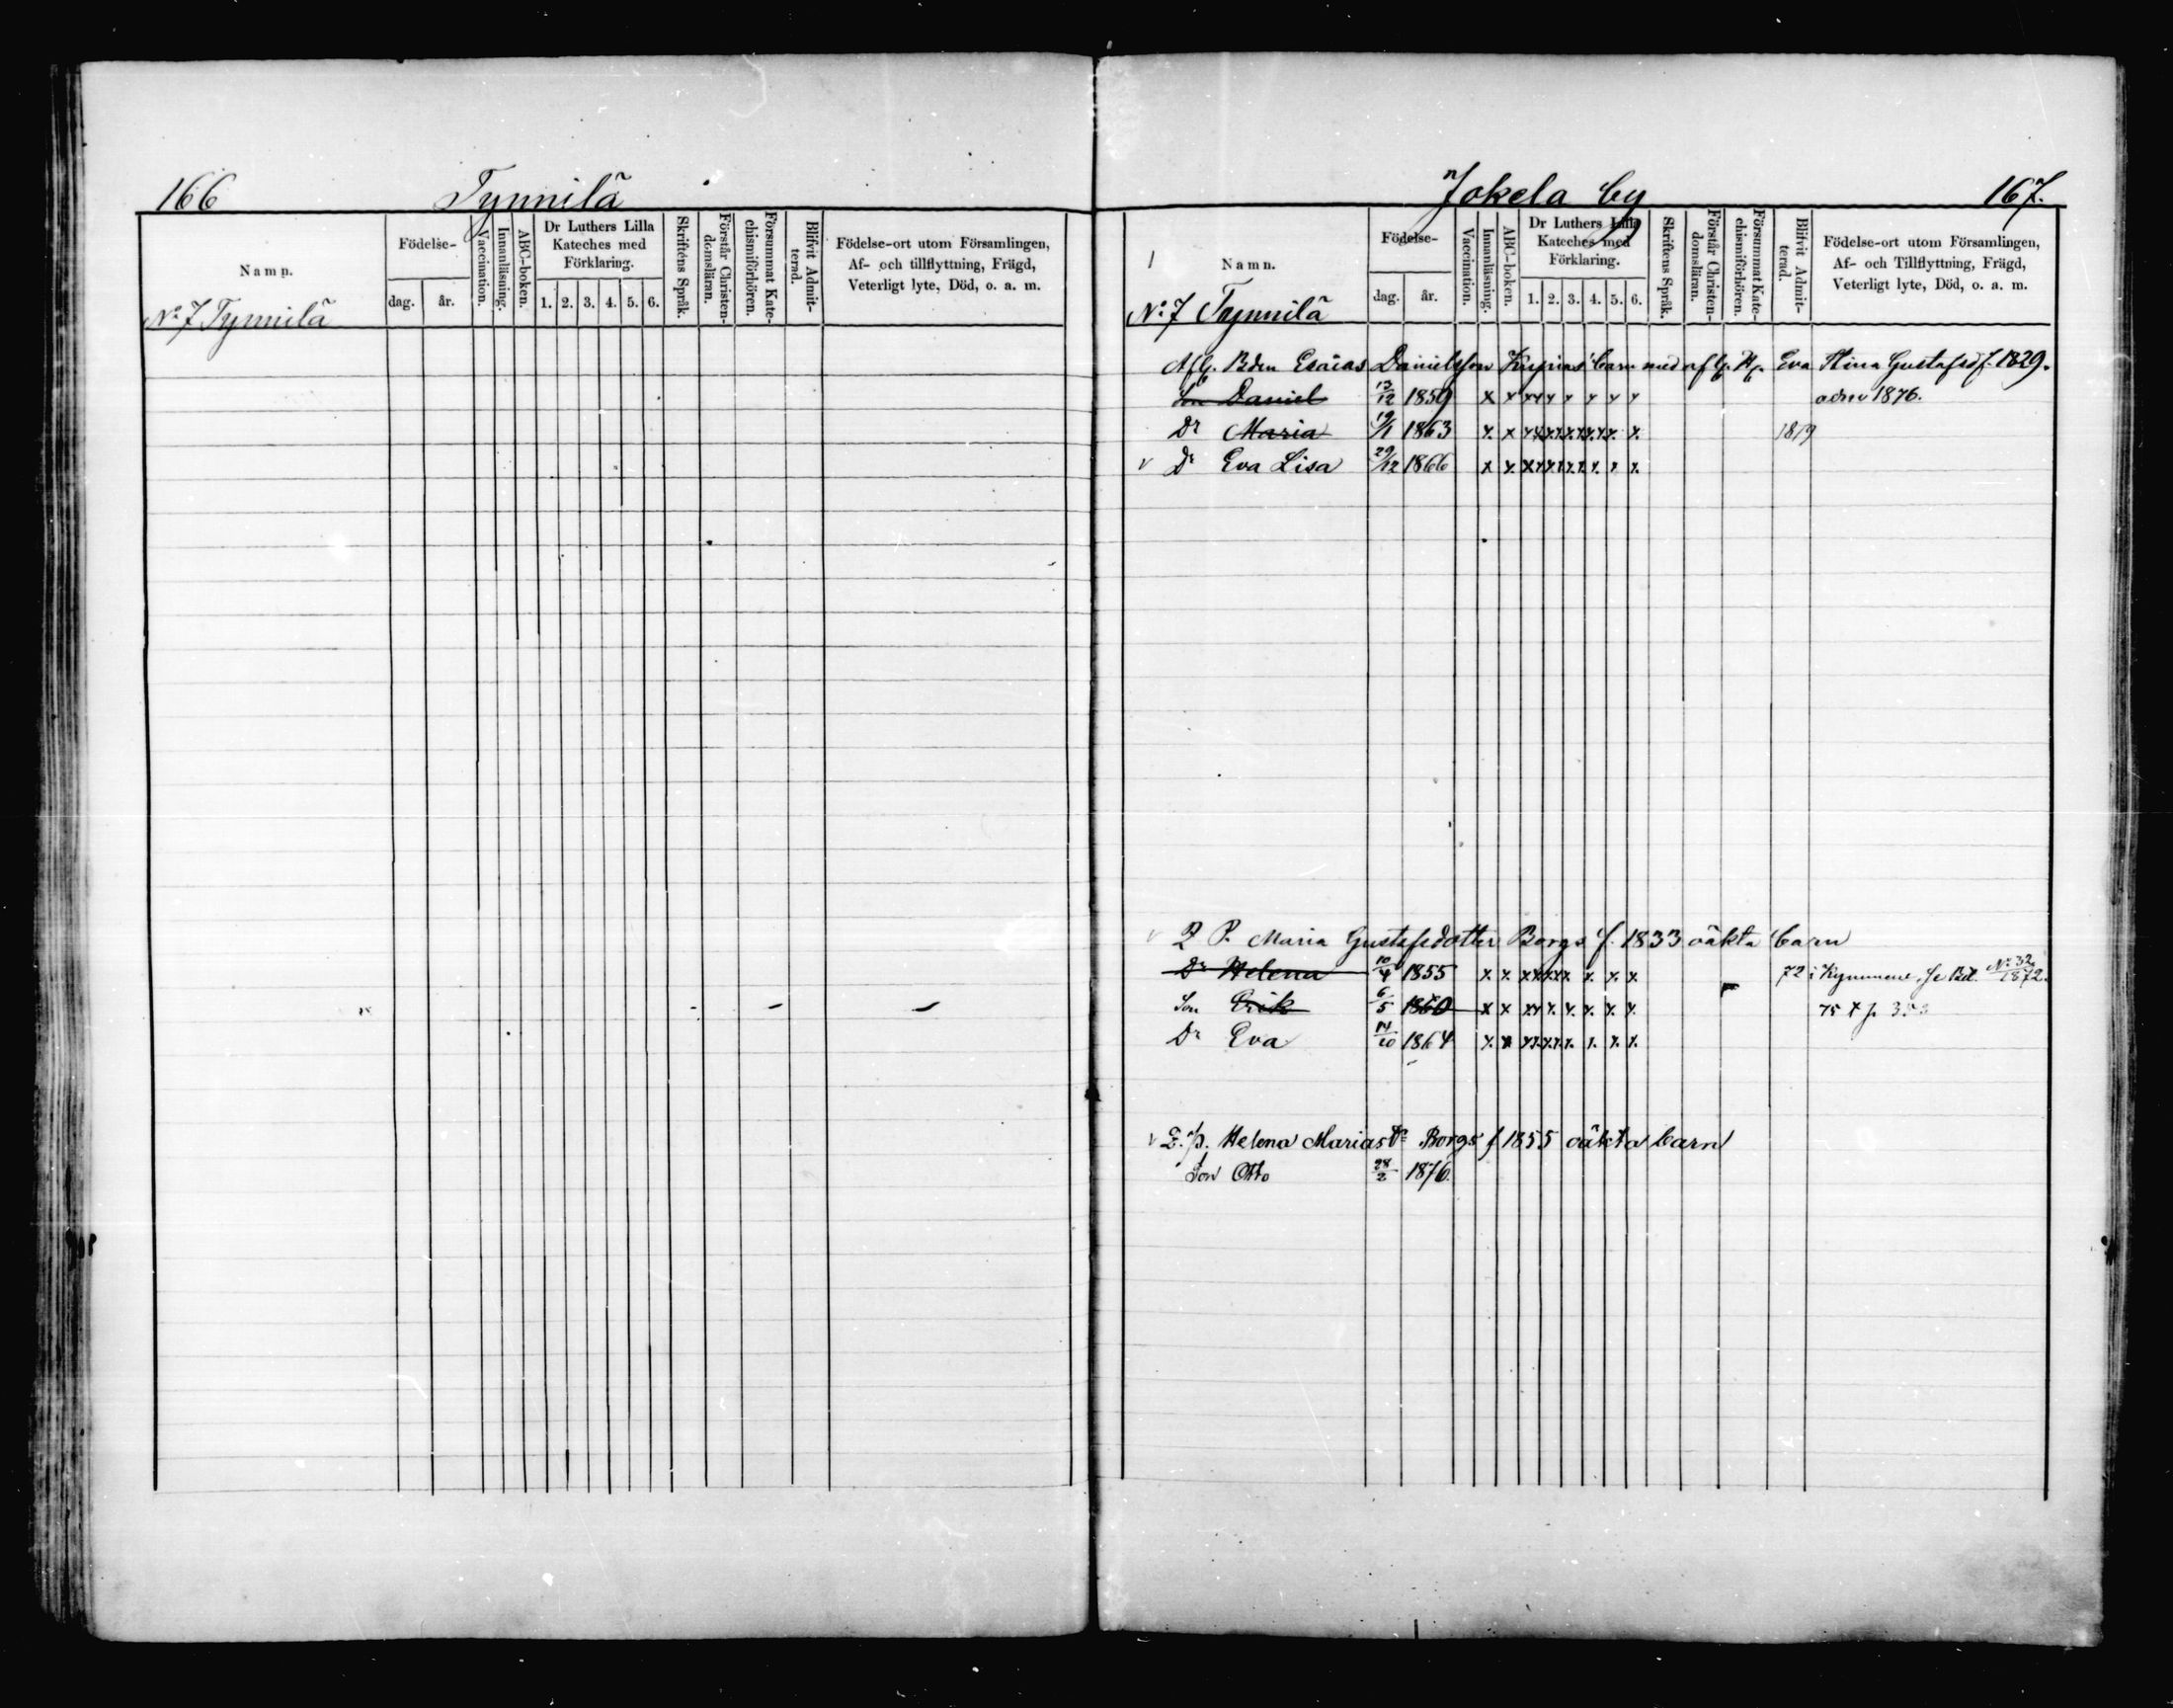 166 Tynnilä
Namn. Födelse- dag. år. Vaccination. Innanläsning. ABC-boken. Dr Luthers Lilla Kateches med Förklaring. 1. 2. 3. 4. 5. 6. Skriftens Språk. Förstår Christendomsläran. Försummat Katechismiförhören. Blifvit Admitterad. Födelse-ort utom Församlingen, Af- och tillflyttning, Frägd, Veterligt lyte, Död, o. a. m.
No 7 Tynnilä
Jokela by 167.
Namn. Födelse- dag. år. Vaccination. Innanläsning. ABC-boken. Dr Luthers Lilla Kateches med Förklaring. 1. 2. 3. 4. 5. 6. Skriftens Språk. Förstår Christendomsläran. Försummat Katechismiförhören. Blifvit Admitterad. Födelse-ort utom Församlingen, Af- och Tillflyttning, Frägd, Veterligt lyte, Död, o. a. m.
No 7 Tynnilä
Afl. Bdn Esaias Danielsson barn med afl. H. Eva Stina Gustafsd f. 1829.
Son Daniel 13/12 1859 x x x x x x x x x 1876.
Dr Maria 19/1 1863 x x x x x x x x x x x x 1879
v Dr Eva Lisa 29/12 1866 x x x x x x x x x x
v Q P. Maria Gustafsdotter Borgs f. 1833 oäkta barn
Dr Helena 10/4 1855 x x x x x x x x x x 72 i Kymmene, se Bil. No 32/1872.
Son Erik 6/5 1860 x x x x x x x x x 75 † p. 353
Dr Eva 14/10 1864 x x x x x x x x x x
v Q. p. Helena Marias dr Borgs f 1855 oäkta barn
Son Otto 28/2 1876.